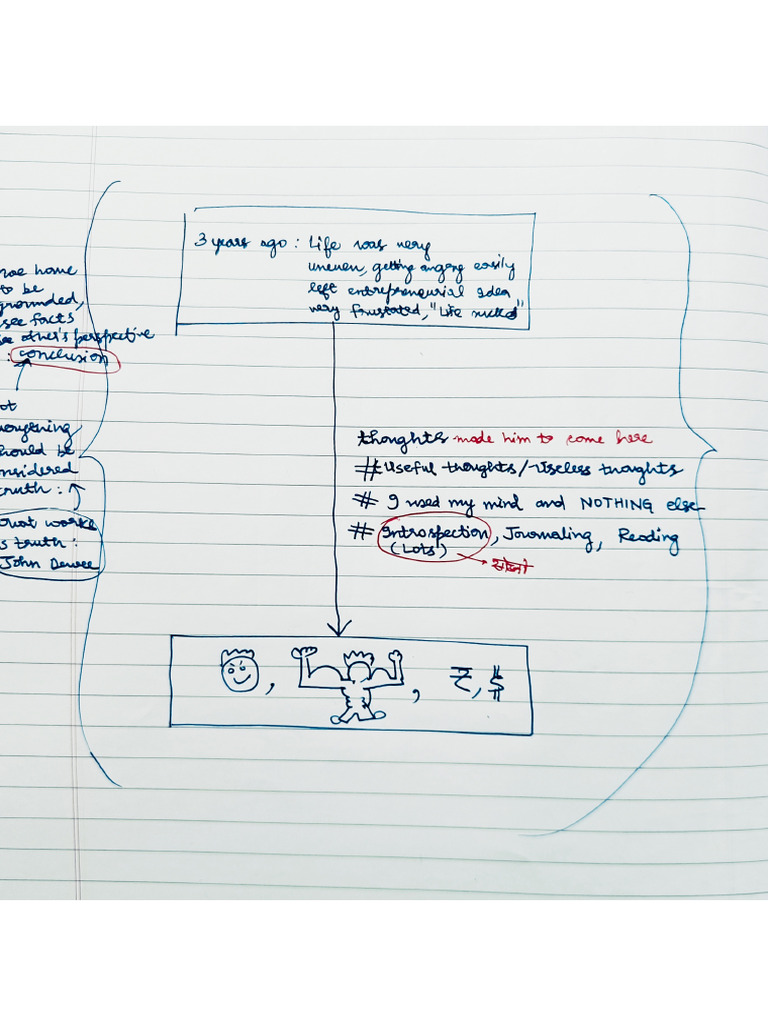 3 years ago : Life was very
uneven, getting angery easily
left entrepreneurial Idea
very frustated, "Life sucked"
home
to be
grounded,
see facts
other's perspective
: conclusion
should be
truth :
works
truth :
John Dewee
thoughts made him to come here
# Useful thoughts/Useless thoughts
# I used my mind and NOTHING else
# Introspection, Journaling, Reading
(Lots)
₹, $